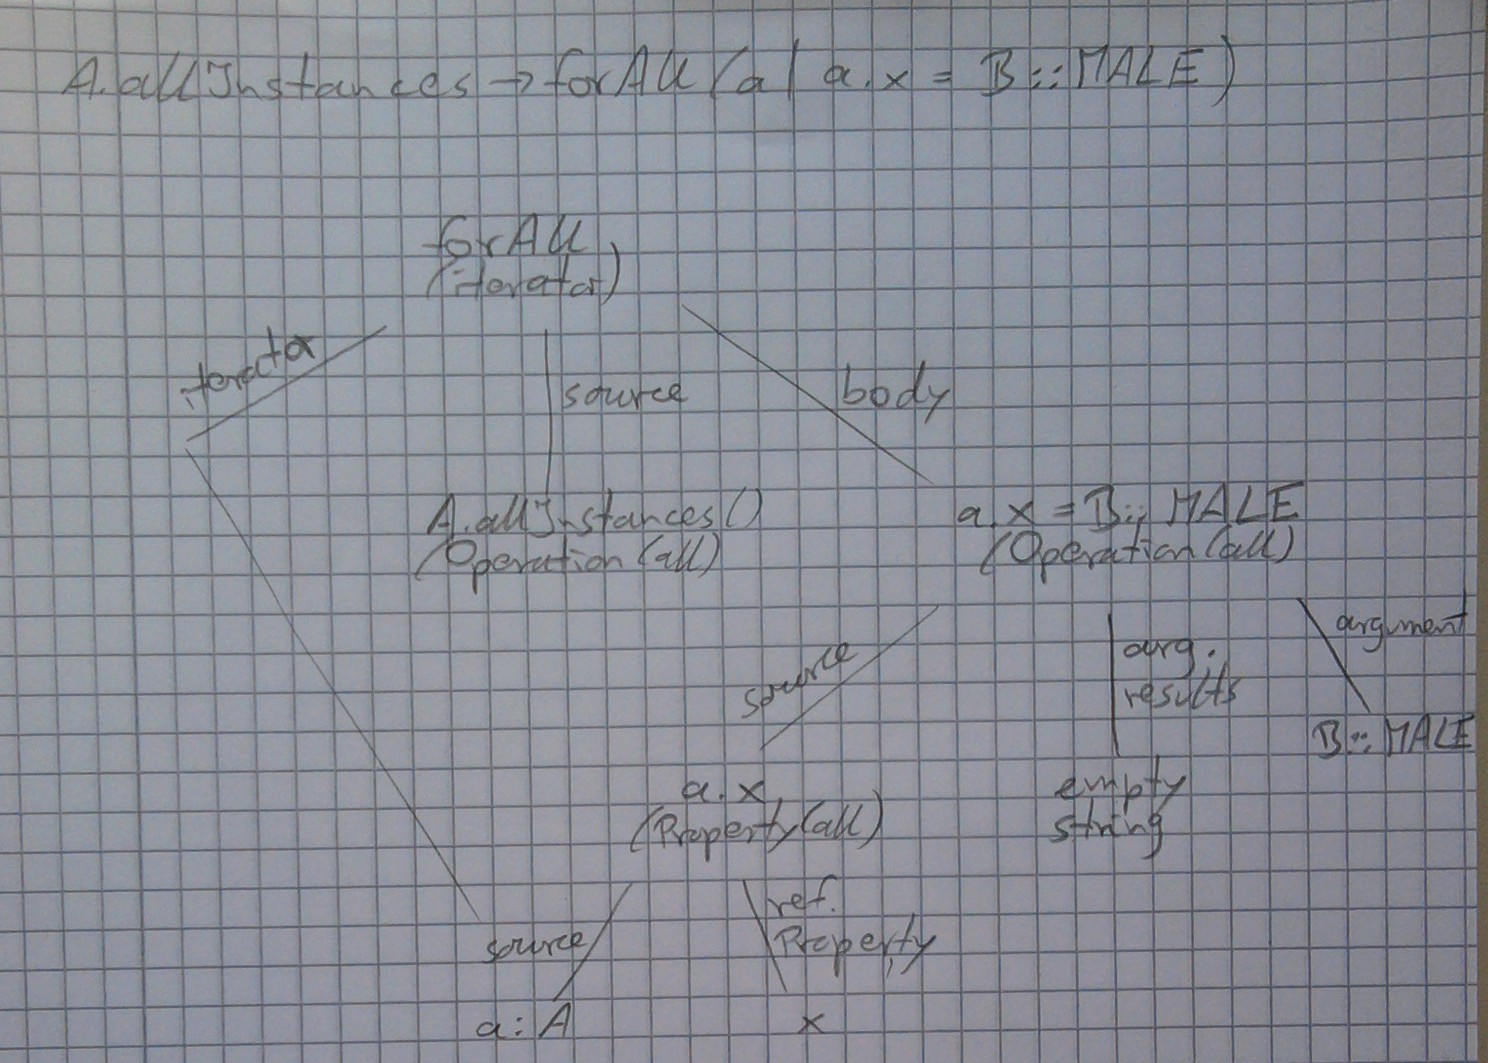 A.allInstances → forAll (a | a.x = B::MALE)
forAll
(iterator)
iterator
source
body
A.allInstances()
(OperationCall)
a.x = B::MALE
(OperationCall)
source
arg.
results
argument
B::MALE
a.x
(PropertyCall)
empty
string
source
ref.
Property
a:A
x